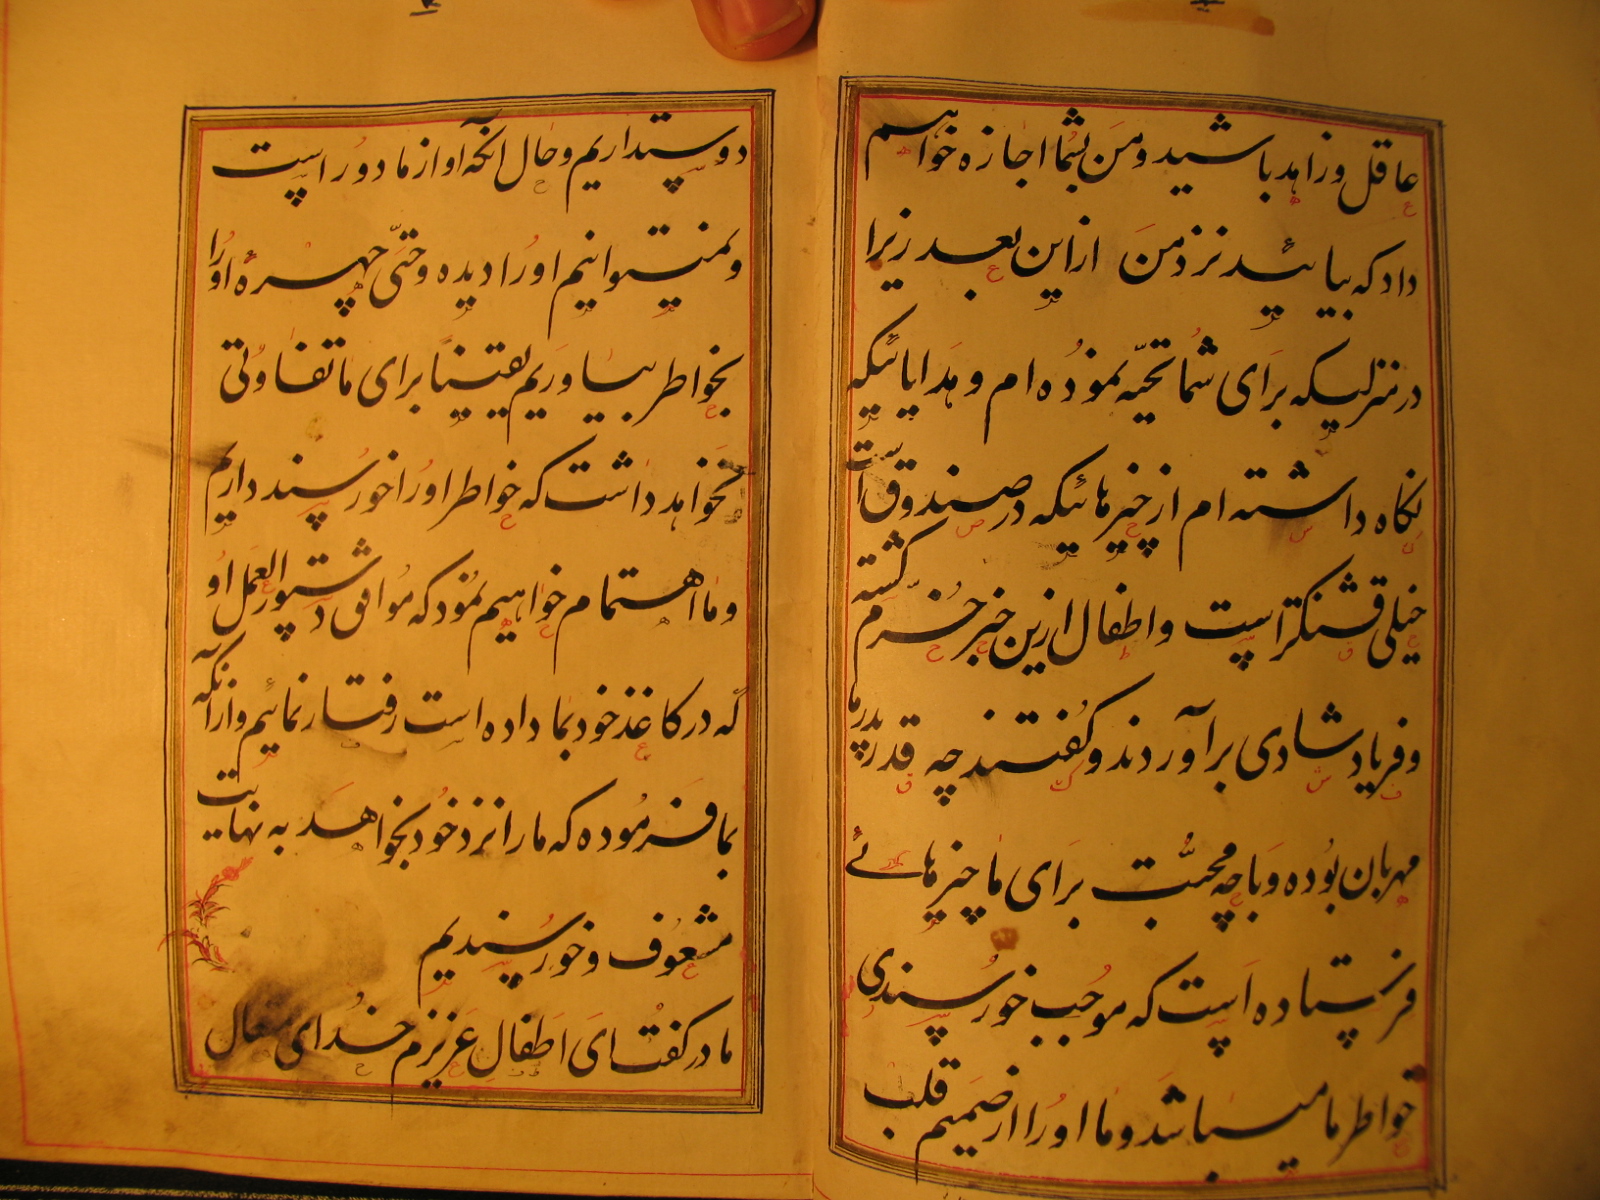 عاقل و زاهد باشید و من بشما اجازه خواهم
داد که بیائید نزد من از این بعد زیرا
در منزلیکه برای شما تهیّه نموده ام و هدایائیکه
نگاه داشته ام از چیزهائیکه در صندوق است
خیلی قشنگتر است و اطفال ازین خبر خرم گشته
و فریاد شادی برآوردند و گفتند چه قدر پدر ما
مهربان بوده و با چه محبّت برای ما چیزهائے
فرستاده است که موجب خورسندی
خواطر ما میباشد و ما او را از صمیم قلب
دوستداریم و حال آنکه او از ما دور است
و نمیتوانیم او را دیده و حتّی چهرهٔ او را
بخواطر بیاوریم یقیناً برای ما تفاوتی
نخواهد داشت که خواطر او را خورسند داریم
و ما اهتمام خواهیم نمود که موافق دستورالعمل او
که در کاغذ خود بما داده است رفتار نمائیم و از آنکه
بما فرموده که ما را نزد خود بخواهد به نهایت
مشعوف و خورسندیم
مادر گفت ای اطفال عزیزم خدای متعال